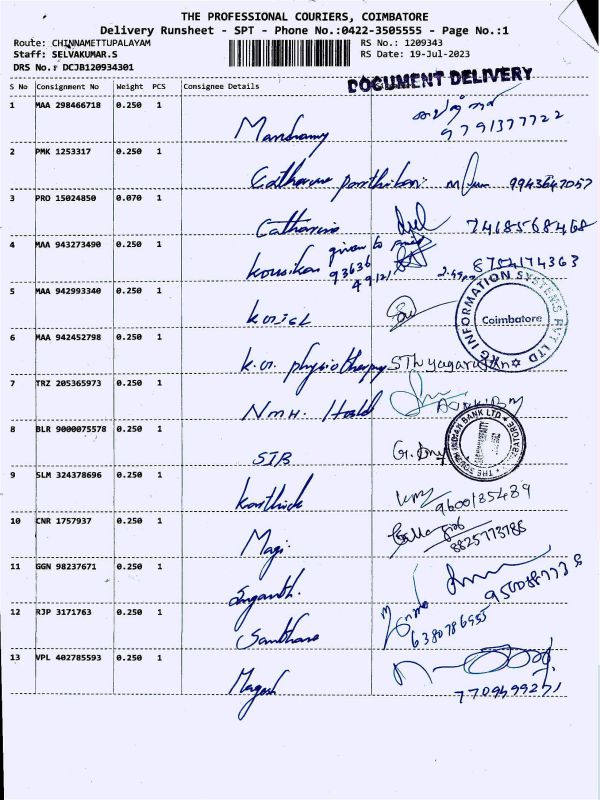 THE PROFESSIONAL COURIERS, COIMBATORE
Delivery Runsheet - SPT - Phone No.:0422-3505555 - Page No.:1
Route: CHINNAMETTUPALAYAM
Staff: SELVAKUMAR.S
DRS No.: DCJB120934301
RS No.: 1209343
RS Date: 19-Jul-2023
DOCUMENT DELIVERY
S No Consignment No Weight PCS Consignee Details
1 MAA 298466718 0.250 1
9791377722
2 PMK 1253317 0.250 1
Catherine Parthiban 9943647057
3 PRO 15024850 0.070 1
Catherine 7418568468
4 MAA 943273490 0.250 1
Kousikan given to 93636 49121 2.45pm 8704174363
5 MAA 942993340 0.250 1
KGISL
KG INFORMATION SYSTEMS PVT LTD
Coimbatore
6 MAA 942452798 0.250 1
K.G. physiotherapy S Thyagarajan
7 TRZ 205365973 0.250 1
NMH.
8 BLR 9000075578 0.250 1
SIB G.
THE SOUTH INDIAN BANK LTD
9 SLM 324378696 0.250 1
Karthick 9600135489
10 CNR 1757937 0.250 1
Magi 8825773788
11 GGN 98237671 0.250 1
12 RJP 3171763 0.250 1
Santhana 6380786955
13 VPL 402785593 0.250 1
Magesh 7709499271